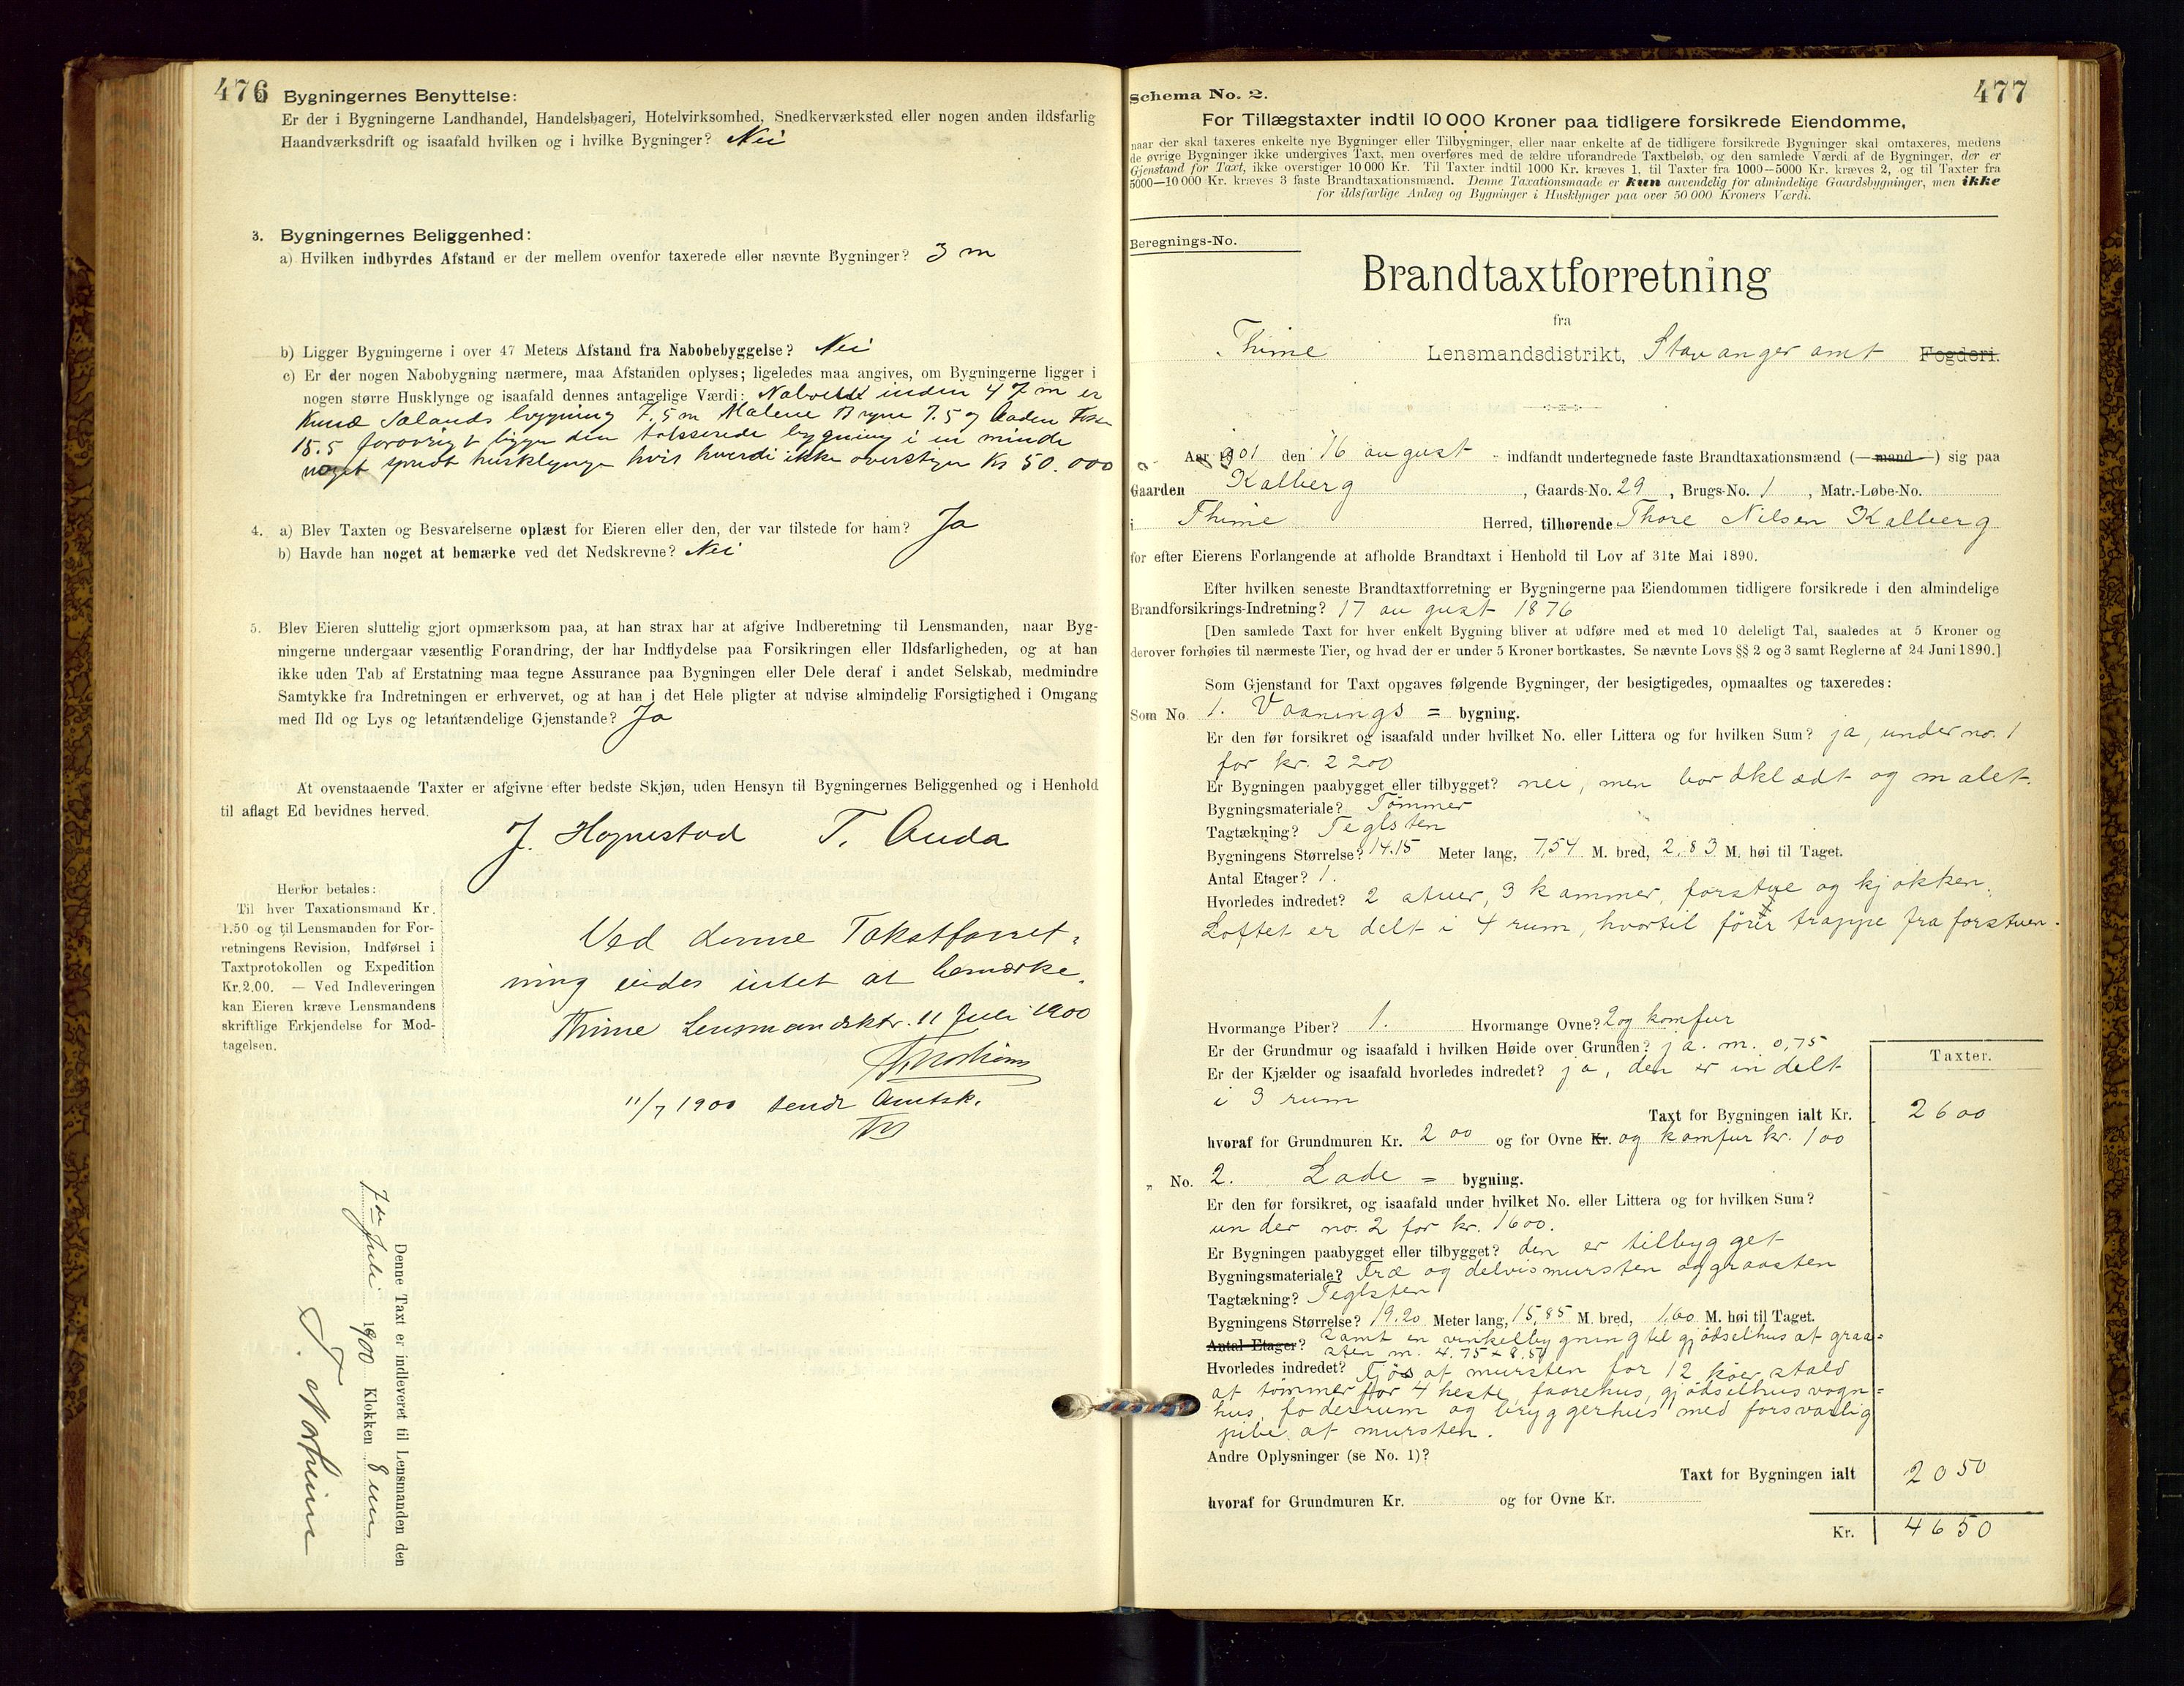 476
Bygningernes Benyttelse:
Er der i Bygningerne Landhandel, Handelsbageri, Hotelvirksomhed, Snedkerværksted eller nogen anden ildsfarlig
Haandværksdrift og isaafald hvilken og i hvilke Bygninger? Nei
3. Bygningernes Beliggenhed:
a) Hvilken indbyrdes Afstand er der mellem ovenfor taxerede eller nævnte Bygninger? 3 m
b) Ligger Bygningerne i over 47 Meters Afstand fra Nabobebyggelse? Nei
c) Er der nogen Nabobygning nærmere, maa Afstanden oplyses; ligeledes maa angives, om Bygningerne ligger i
nogen større Husklynge og isaafald dennes antagelige Værdi: inden 47 m er
Knud Salands bygning 7,5 m Malene Bryne 7.5 og
15.5 forøvrigt ligger den takserede bygning i en mindre
noget spredt husklynge hvis hverdi ikke overstiger Kr 50.000
4. a) Blev Taxten og Besvarelserne oplæst for Eieren eller den, der var tilstede for ham? Ja
b) Havde han noget at bemærke ved det Nedskrevne? Nei
5. Blev Eieren sluttelig gjort opmærksom paa, at han strax har at afgive Indberetning til Lensmanden, naar Byg-
ningerne undergaar væsentlig Forandring, der har Indflydelse paa Forsikringen eller Ildsfarligheden, og at han
ikke uden Tab af Erstatning maa tegne Assurance paa Bygningen eller Dele deraf i andet Selskab, medmindre
Samtykke fra Indretningen er erhvervet, og at han i det Hele pligter at udvise almindelig Forsigtighed i Omgang
med Ild og Lys og letantændelige Gjenstande? Ja
At ovenstaaende Taxter er afgivne efter bedste Skjøn, uden Hensyn til Bygningernes Beliggenhed og i Henhold
til aflagt Ed bevidnes herved.
J. Hognestad T. Auda
Herfor betales:
Til hver Taxationsmand Kr.
1.50 og til Lensmanden for For-
retningens Revision, Indførsel i
Taxtprotokollen og Expedition
Kr. 2.00. — Ved Indleveringen
kan Eieren kræve Lensmandens
skriftlige Erkjendelse for Mod-
tagelsen.
Ved denne Takstforret-
ning vides intet at bemærke.
Thime Lensmandsktr. 11 Juli 1900
11/7 1900 sendt Amtsk.
Denne Taxt er indleveret til Lensmanden den
7de Juli 1900 Klokken 8 em
477
Schema No. 2.
For Tillægstaxter indtil 10 000 Kroner paa tidligere forsikrede Eiendomme,
naar der skal taxeres enkelte nye Bygninger eller Tilbygninger, eller naar enkelte af de tidligere forsikrede Bygninger skal omtaxeres, medens
de øvrige Bygninger ikke undergives Taxt, men overføres med de ældre uforandrede Taxtbeløb, og den samlede Værdi af de Bygninger, der er
Gjenstand for Taxt, ikke overstiger 10 000 Kr. Til Taxter indtil 1000 Kr. kræves 1, til Taxter fra 1000—5000 Kr. kræves 2, og til Taxter fra
5000—10 000 Kr. kræves 3 faste Brandtaxationsmænd. Denne Taxationsmaade er kun anvendelig for almindelige Gaardsbygninger, men ikke
for ildsfarlige Anlæg og Bygninger i Husklynger paa over 50 000 Kroners Værdi.
Beregnings-No.
Brandtaxtforretning
fra
Thime Lensmandsdistrikt, Stavanger amt Fogderi.
Aar 1901 den 16 august indfandt undertegnede faste Brandtaxationsmænd (—mand—) sig paa
Gaarden Kalberg, Gaards-No. 29, Brugs-No. 1, Matr.-Løbe-No.
i Thime Herred, tilhørende Thore Nilsen Kalberg
for efter Eierens Forlangende at afholde Brandtaxt i Henhold til Lov af 31te Mai 1890.
Efter hvilken seneste Brandtaxtforretning er Bygningerne paa Eiendommen tidligere forsikrede i den almindelige
Brandforsikrings-Indretning? 17 august 1876
[Den samlede Taxt for hver enkelt Bygning bliver at udføre med et med 10 deleligt Tal, saaledes at 5 Kroner og
derover forhøies til nærmeste Tier, og hvad der er under 5 Kroner bortkastes. Se nævnte Lovs §§ 2 og 3 samt Reglerne af 24 Juni 1890.]
Som Gjenstand for Taxt opgaves følgende Bygninger, der besigtigedes, opmaaltes og taxeredes:
Som No. 1. Vaanings = bygning.
Er den før forsikret og isaafald under hvilket No. eller Littera og for hvilken Sum? ja, under no. 1
for kr. 2200
Er Bygningen paabygget eller tilbygget? nei, men bordklædt og malet.
Bygningsmateriale? Tømmer
Tagtækning? Teglsten
Bygningens Størrelse? 14.15 Meter lang, 7,54 M. bred, 2,83 M. høi til Taget.
Antal Etager? 1.
Hvorledes indredet? 2 stuer, 3 kammer, forstue og kjøkken.
Loftet er delt i 4 rum, hvortil fører trappe fra forstuen.
Hvormange Piber? 1. Hvormange Ovne? 2 og komfur
Er der Grundmur og isaafald i hvilken Høide over Grunden? ja. m. 0,75
Taxter.
Er der Kjælder og isaafald hvorledes indredet? ja, den er indelt
i 3 rum
Taxt for Bygningen ialt Kr. 2600
hvoraf for Grundmuren Kr. 200 og for Ovne Kr. og komfur kr. 100
„ No. 2. Lade = bygning.
Er den før forsikret, og isaafald under hvilket No. eller Littera og for hvilken Sum?
under no. 2 for kr. 1600.
Er Bygningen paabygget eller tilbygget? den er tilbygget
Bygningsmateriale? Træ og delvis mursten og graasten
Tagtækning? Teglsten
Bygningens Størrelse? 19.20 Meter lang, 15,85 M. bred, 1,60 M. høi til Taget.
Antal Etager? samt en vinkelbygning til gjødselhus af graa=
sten m. 4.75 × 8.54
Hvorledes indredet? Fjøs af mursten for 12 kør, stald
af tømmer for 4 heste, faarehus, gjødselhus vogn=
hus, foderrum og bryggerhus med forsvarlig
pibe af mursten.
Andre Oplysninger (se No. 1)?
Taxt for Bygningen ialt 2050
hvoraf for Grundmuren Kr. og for Ovne Kr.
Kr. 4650